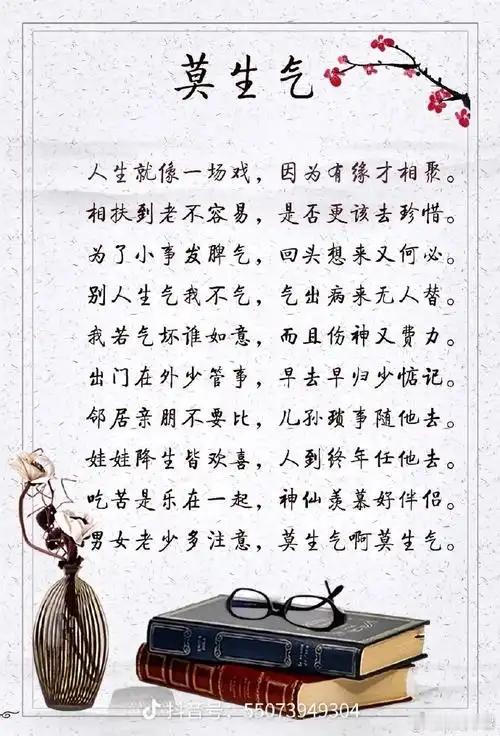 莫生气
人生就像一场戏，因为有缘才相聚。
相扶到老不容易，是否更该去珍惜。
为了小事发脾气，回头想来又何必。
别人生气我不气，气出病来无人替。
我若气坏谁如意，而且伤神又费力。
出门在外少管事，早去早归少惦记。
邻居亲朋不要比，儿孙琐事随他去。
娃娃降生皆欢喜，人到终年任他去。
吃苦是乐在一起，神仙羡慕好伴侣。
男女老少多注意，莫生气啊莫生气。
抖音号：55073949304